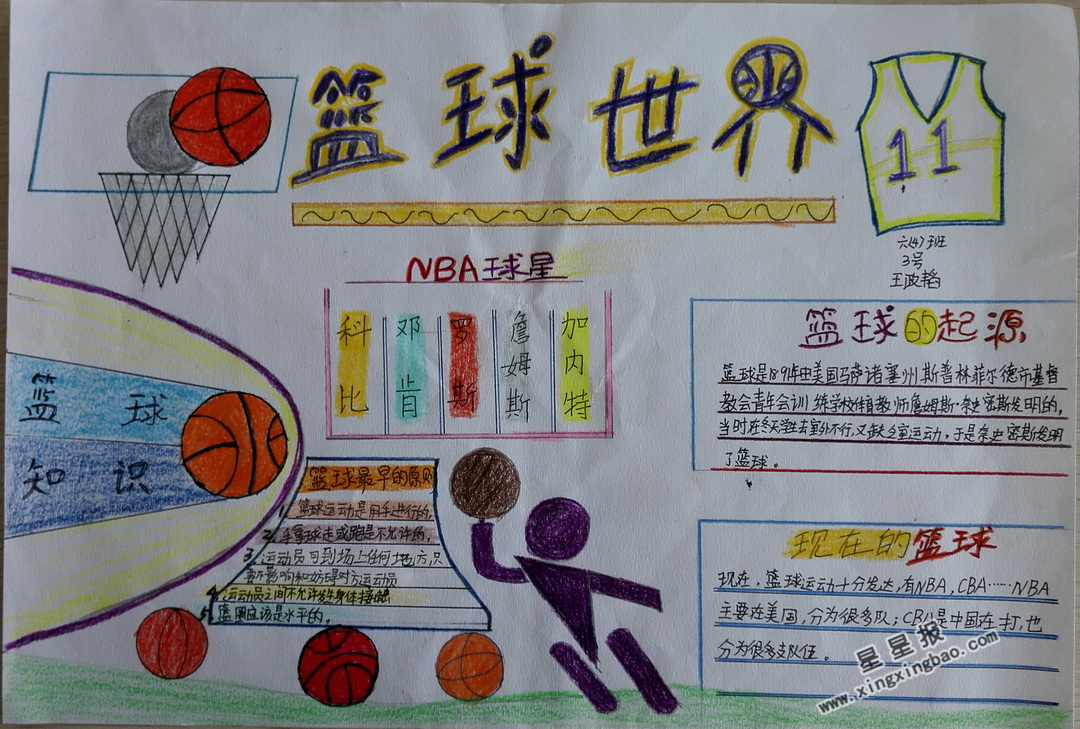 篮球世界
11
六(4)班
3号
王政韬
NBA球星
科比
邓肯
罗斯
詹姆斯
加内特
篮球的起源
篮球是1891年由美国马萨诸塞州斯普林菲尔德市基督
教会青年会训练学校体育教师詹姆斯·奈史密斯发明的,
当时在冬天学生去室外不行,又缺乏室运动。于是奈史密斯发明
了篮球。
篮球
知识
篮球最早的原则
1、篮球运动是用手进行的。
2、手拿球走或跑是不允许的。
3、运动员可到场上任何地方,只
要不影响和妨碍对方运动员
4、运动员之间不允许发生身体接触
5、篮圈应该是水平的。
现在的篮球
现在,篮球运动十分发达,有NBA,CBA……NBA
主要在美国,分为很多队;CBA是中国在打,也
分为很多支队伍。
星星报
www.xingxingbao.com